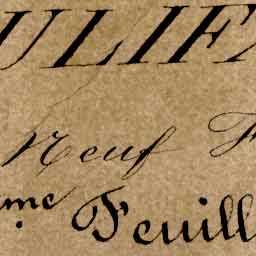 ULIE
Neuf F
me Feuill